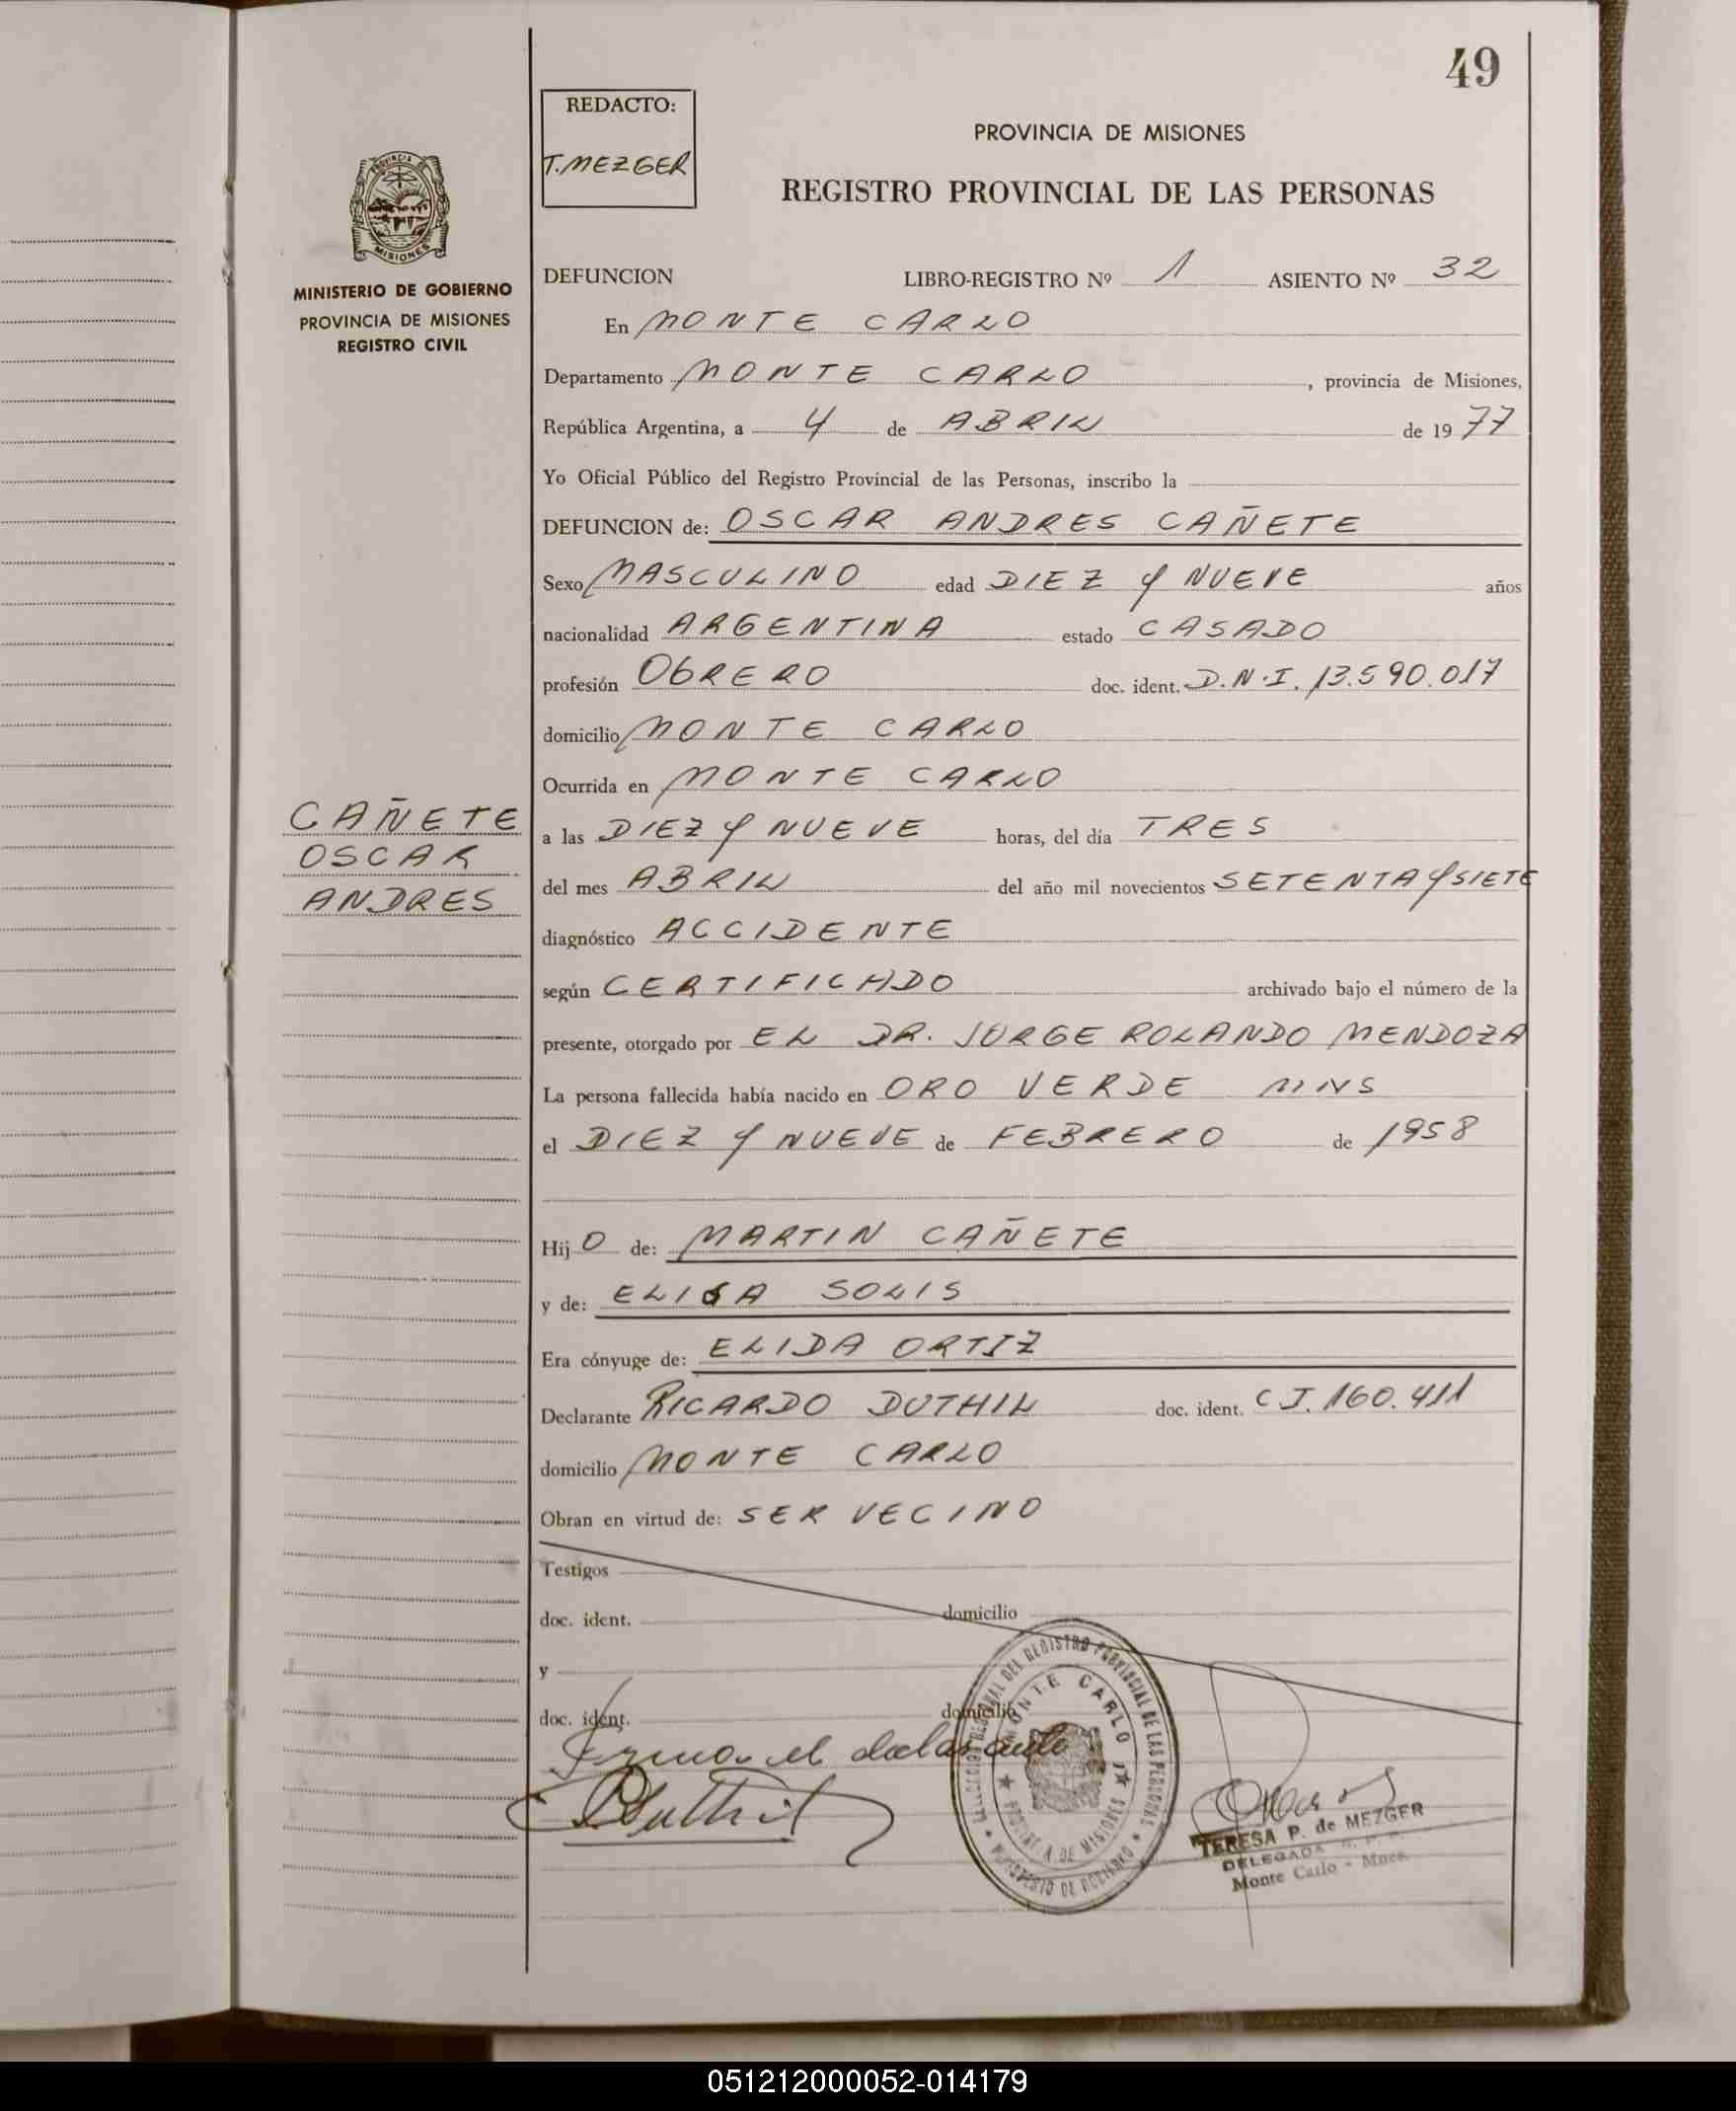 49
REDACTO:
T. MEZGER
PROVINCIA DE MISIONES
REGISTRO PROVINCIAL DE LAS PERSONAS
PROVINCIA DE
MISIONES
MINISTERIO DE GOBIERNO
PROVINCIA DE MISIONES
REGISTRO CIVIL
DEFUNCION LIBRO-REGISTRO Nº 1 ASIENTO Nº 32
En MONTE CARLO
Departamento MONTE CARLO, provincia de Misiones,
República Argentina, a 4 de ABRIL de 1977
Yo Oficial Público del Registro Provincial de las Personas, inscribo la
DEFUNCION de: OSCAR ANDRES CAÑETE
Sexo MASCULINO edad DIEZ Y NUEVE años
nacionalidad ARGENTINA estado CASADO
profesión OBRERO doc. ident. D.N.I. 13.590.017
domicilio MONTE CARLO
Ocurrida en MONTE CARLO
CAÑETE
OSCAR
ANDRES
a las DIEZ Y NUEVE horas, del día TRES
del mes ABRIL del año mil novecientos SETENTA Y SIETE
diagnóstico ACCIDENTE
según CERTIFICADO archivado bajo el número de la
presente, otorgado por EL DR. JORGE ROLANDO MENDOZA
La persona fallecida había nacido en ORO VERDE MNS
el DIEZ Y NUEVE de FEBRERO de 1958
Hij O de: MARTIN CAÑETE
y de: ELISA SOLIS
Era cónyuge de: ELIDA ORTIZ
Declarante RICARDO DUTHIL doc. ident. C I. 160.411
domicilio MONTE CARLO
Obran en virtud de: SER VECINO
Testigos
doc. ident. domicilio
y
doc. ident. domicilio
Firma el declarante
RDuthil
DEL REGISTRO PROVINCIAL DE LAS PERSONAS
MINISTERIO DE GOBIERNO
MONTE CARLO
PROVINCIA DE MISIONES
TERESA P. de MEZGER
DELEGADA R. P. P.
Monte Carlo - Mnes.
051212000052-014179